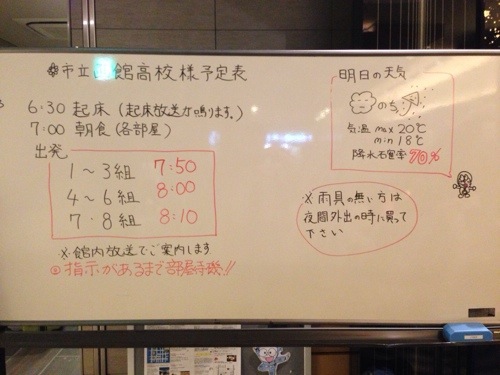 市立函館高校様予定表
6:30 起床(起床放送が鳴ります。)
7:00 朝食(各部屋)
出発
1～3組 7:50
4～6組 8:00
7・8組 8:10
※館内放送でご案内します
◎指示があるまで部屋待機!!
明日の天気
のち
気温 max 20℃
min 18℃
降水確率 70%
※雨具の無い方は
夜間外出の時に買って
下さい